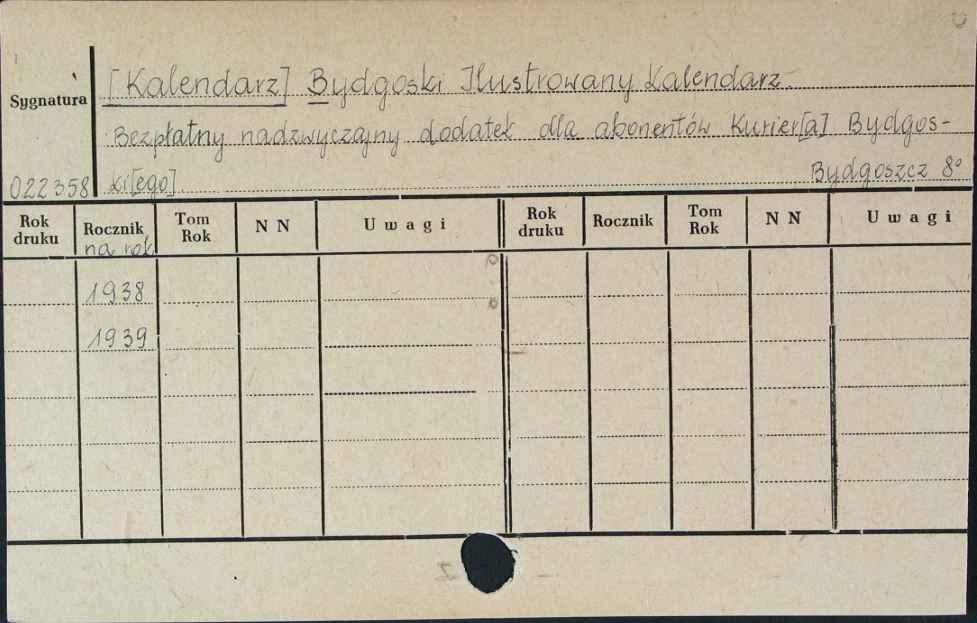 [Kalendarz] Bydgoski Ilustrowany Kalendarz.
Sygnatura
Bezpłatny nadzwyczajny dodatek dla abonentów Kurier[a] Bydgos-
022358 ki[ego]. Bydgoszcz 8°
Rok druku Rocznik Tom Rok N N Uwagi Rok druku Rocznik Tom Rok N N Uwagi
na rok
1938
1939